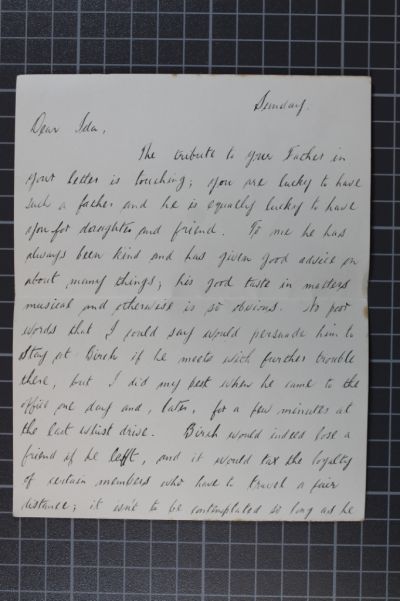 Sunday.
Dear Ida,
The tribute to your Father in
your letter is touching; you are lucky to have
such a father and he is equally lucky to have
you for daughter and friend. To me he has
always been kind and has given good advice on
about many things; his good taste in matters
musical and otherwise is so obvious. No poor
words that I could say would persuade him to
stay at Birch if he meets with further trouble
there, but I did my best when he came to the
office one day and, later, for a few minutes at
the last whist drive. Birch would indeed lose a
friend if he left, and it would tax the loyalty
of certain members who have to travel a fair
distance; it isn't to be contemplated so long as he